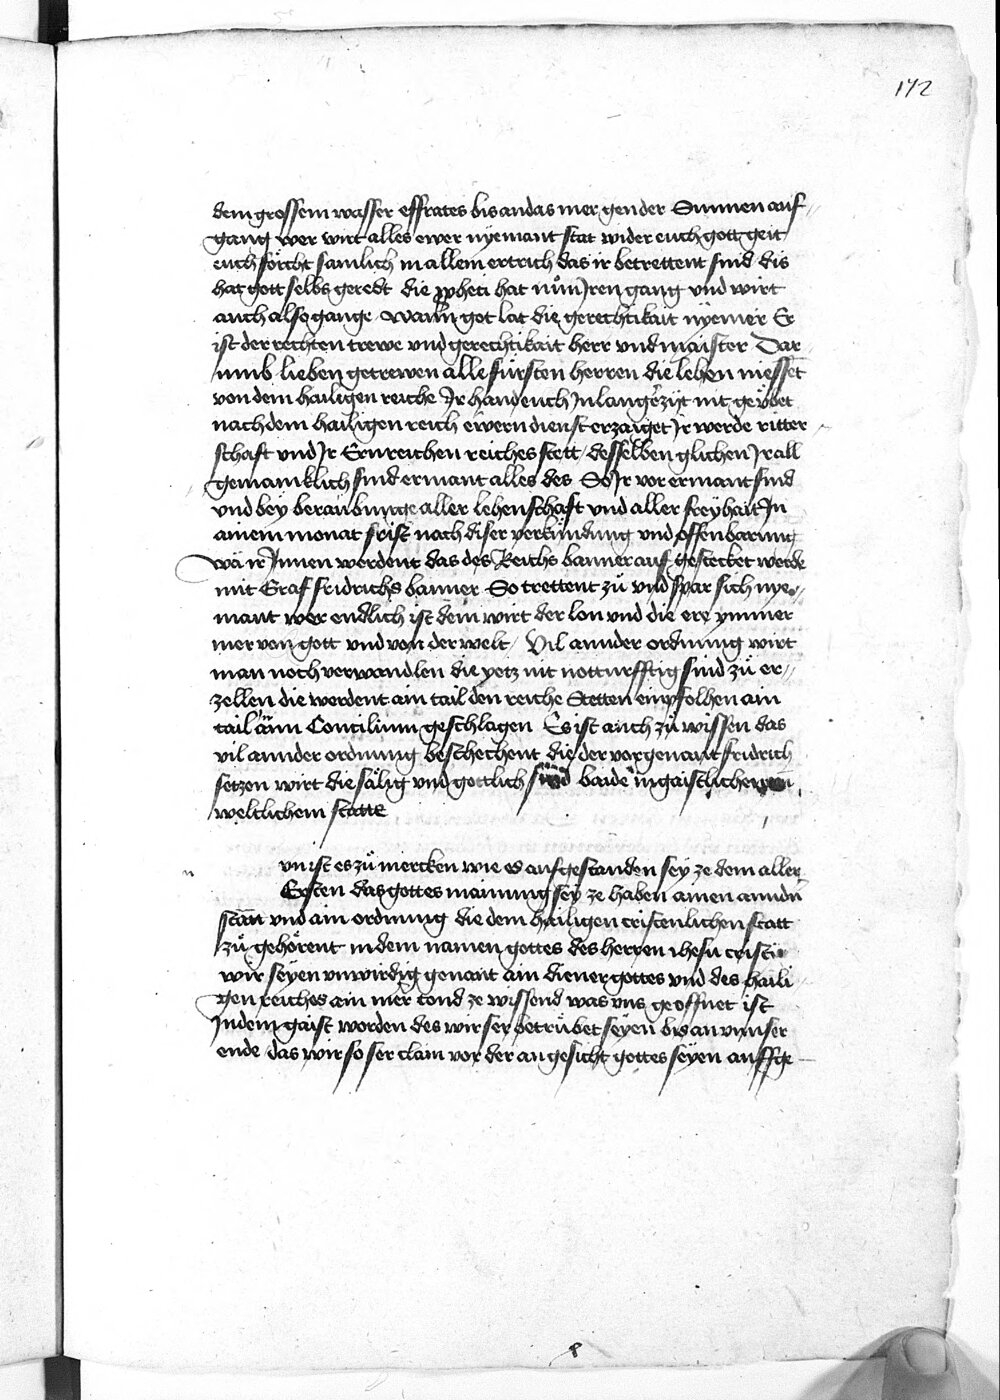 172
dem grossem wasser effrates bis an das mer gen der Sunnen auf„
gang wer wirt alles ewer nyemant stat wider euch gott geit
euch förcht samlich in allem ertrich das ir betrettent sind dis
hat gott selbs geredt die ppheti hat nům Jren gang vnd wirt
auch also gange Wann got lat die gerechtikait nÿemer Er
ist der rechten trewe vnd gerechtikait herr vnd maister Dar
vmb lieben getrewen alle fürsten herren die lehen niesset
von dem hailigen reiche Jr hand euch Jn langer zÿt nit gevbet
nach dem hailigen reich ewern dienst erzaiget Jr werde ritter„
schaft vnd Jr Ernreichen reiches stett / desselben glichen Jr all
gemainklich sind ermant alles des So Jr vor ermant sind
vnd beÿ beraubunge aller lehenschaft vnd aller freÿhait Jn
ainem monat frist nach diser verkündung vnd offenbarung
Wa ir Jnnen werdent das des Reichs banner auf gestecket werde
mit Graf fridrichs banner So trettent zů vnd spar sich nye„
mant wer endlich ist dem wirt der lon vnd die ere ymmer
mer von gott vnd von der welt / Vil annder ordnung wirt
man noch verwandlen die yetz nit notturfftig sind zů er„
zellen die werdent ain tail den reiche Stetten empfolhen ain
tail ann Concilium geschlagen Es ist auch zů wissen das
vil annder ordnung beschechent die der vorgenant fridrich
setzen wirt die sälig vnd gottlich sind baide in gaistlichem vnd
weltlichem statte
n
vn ist es zů mercken wie es aufgestanden seÿ ze dem aller
Ersten das gottes mainung seÿ ze haben ainen anndn
stann vnd ain ordnung die dem hailigen cristenlichen statt
zů gehörent in dem namen gottes des herren ihesu cristi
wir seyen vnwirdig genant ain diener gottes vnd des haili
gen reiches ain mer tond ze wissend was vns geoffnet ist
Jn dem gaist worden des wir ser betrübet seÿen bis an vnnser
ende das wir so ser clain vor der angesicht gottes seÿen auffge